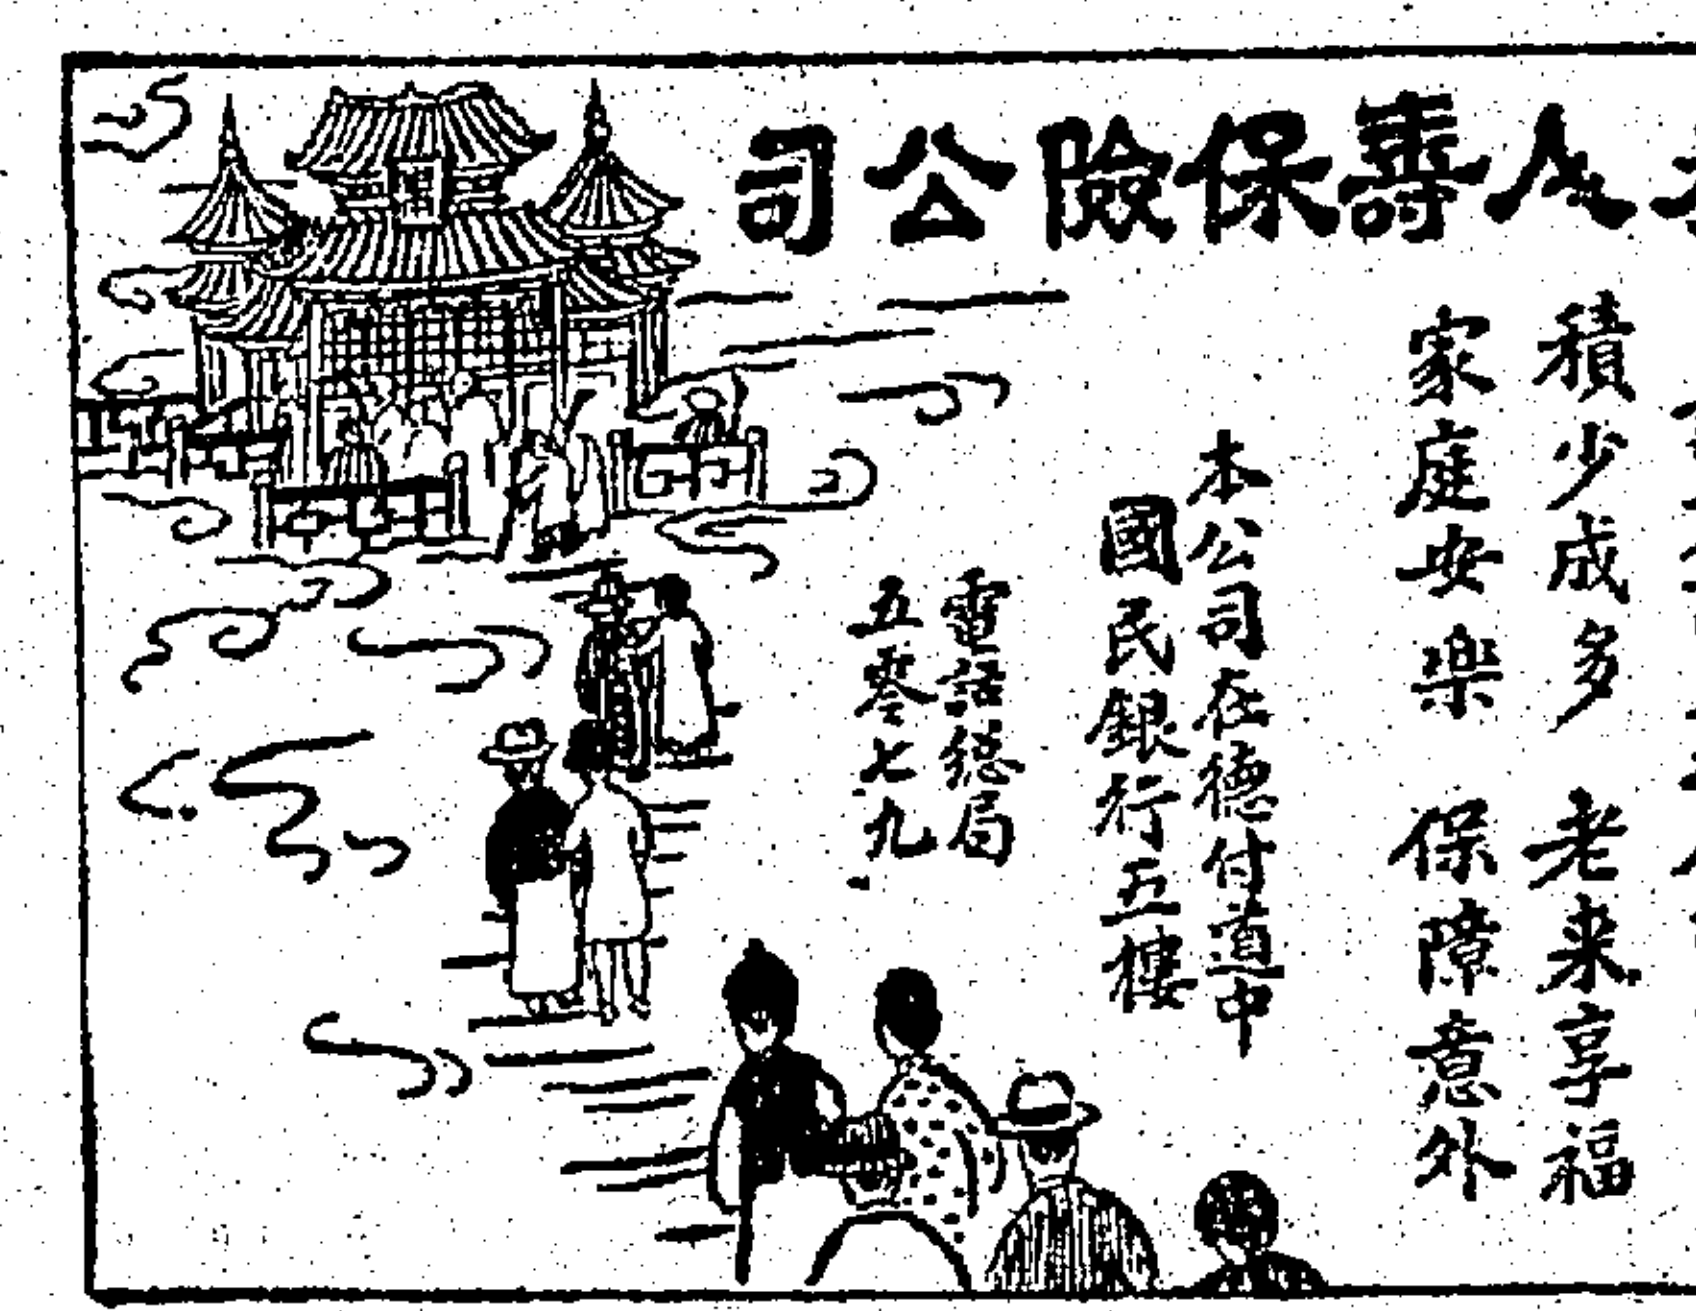 人壽保險公司
積少成多 老來享福
家庭安樂 保障意外
本公司在德付道中
國民銀行五樓
電話總局
五零七九